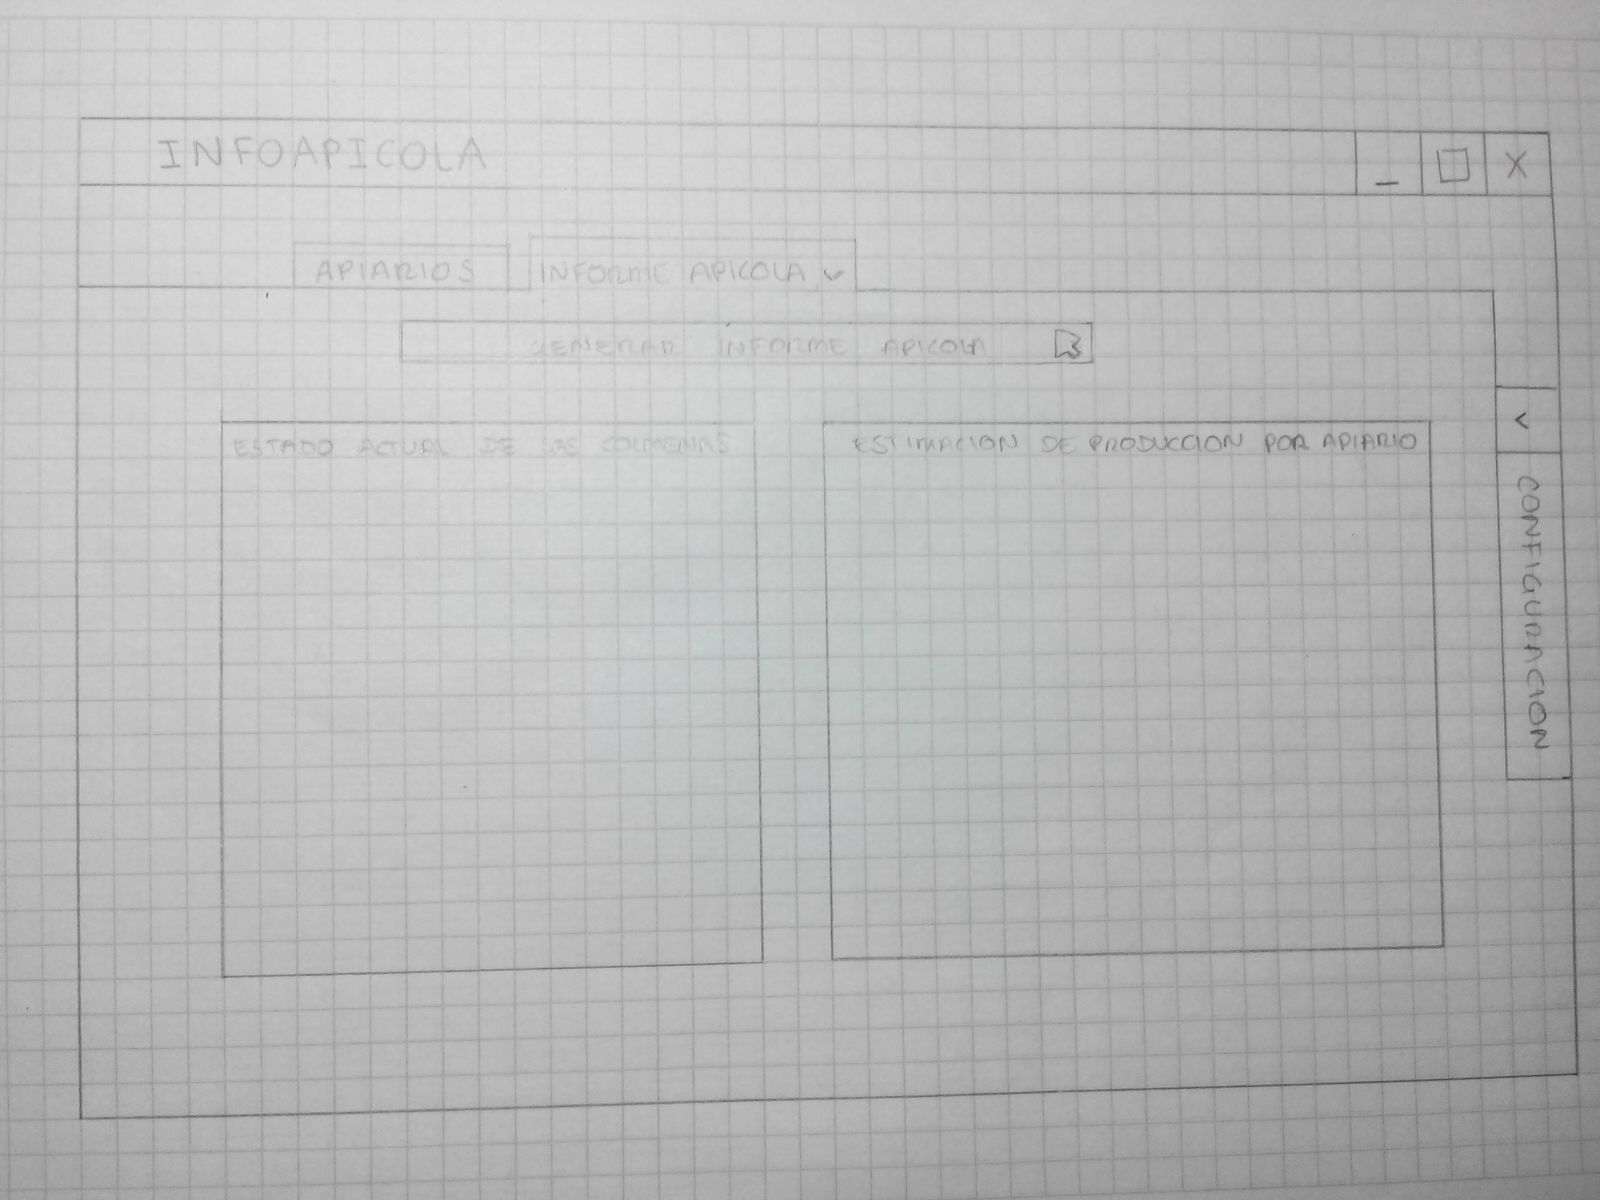 INFOAPICOLA
_ □ X
APIARIOS
INFORME APICOLA
GENERAR INFORME APICOLA
ESTADO ACTUAL DE LAS COLMENAS
ESTIMACION DE PRODUCCION POR APIARIO
CONFIGURACION